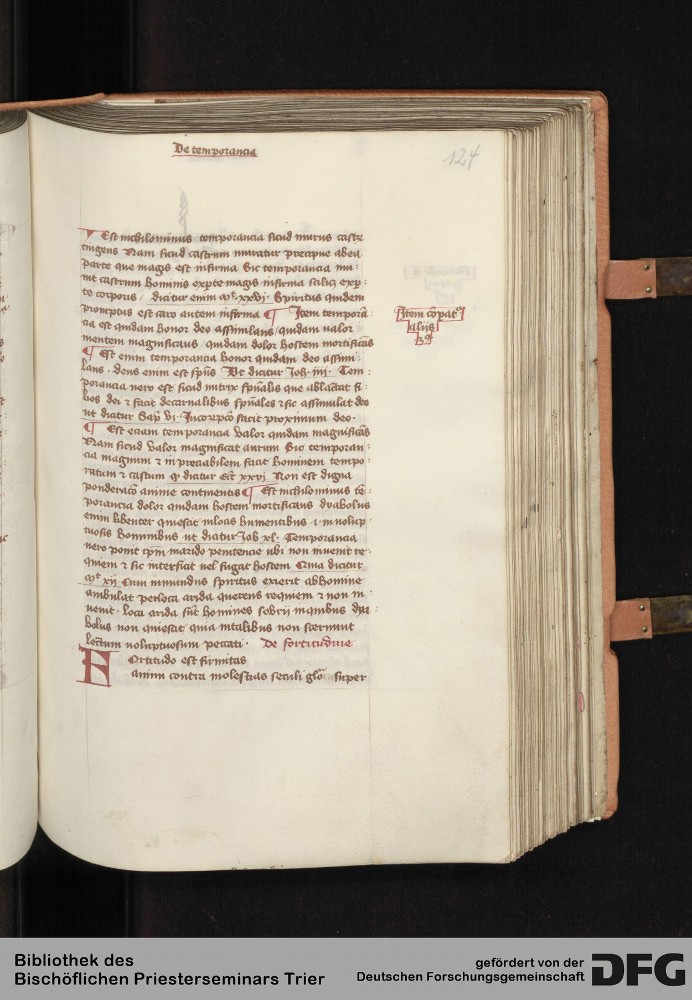 De temporancia
124
Est nichilominus temporancia sicud murus castr
tingens Nam sicud castrum muratur precipue ab ea
parte que magis est infirma Sic temporancia mu-
nit castrum hominis ex parte magis infirma scilicet ex par-
te corporis / dicitur enim mt xxvi Spiritus quidem
promptus est caro autem infirma ¶ Item temporā
cia est quidam honor deo assimilans / quidam valor
mentem magnificans quidam dolor hostem mortificās
¶ Est enim temporancia honor quidam deo assimi-
lans . deus enim est spūs Ut dicitur Joh iiij . Tem-
porancia vero est sicud nutrix spūalis que ablactat fi-
lios dei et facit de carnalibus spūales et sic assimulat deo
ut dictur Sap vi . Incorrupcō facit proximum deo .
¶ Est eciam temporancia valor quidam magnificās
Nam sicud valor magnificat aurum Sic temporan-
cia magnum et inpreciabilem facit hominem tempo-
ratum et castum dicitur xxvi Non est digna
ponderacō anime continentis ¶ Est nichilominus tē-
porancia dolor quidam hostem mortificans dyabolus
enim libenter quiescit in locis humentibus in volup-
tuosis hominibus ut dicitur Job xl . Temporancia
vero ponit in arido penitencie ubi non invenit re-
quiem et sic interficit vel fugat hostem Quia dicitur
mt xij Cum inmundus spiritus exierit ab homine
ambulat per loca arida querens requiem et non in-
venit . loca arida sūt homines sobrii in quibus dya-
bolus non quiescit quia in talibus non
lectum voluptuosum peccati . De fortitudine
Fortitudo est firmitas
animi contra molestias seculi glō super
Item cōpat
alijs